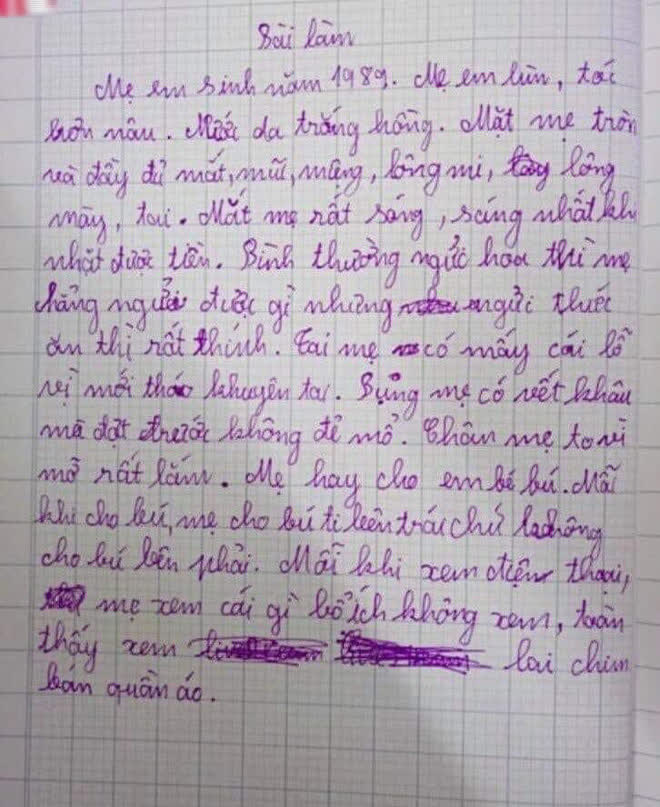 Bài làm
Mẹ em sinh năm 1989. Mẹ em lùn, tóc
hơn nâu. Nước da trắng hồng. Mặt mẹ tròn
và đầy đủ mắt, mũi, mồm, lông mi, lông
mày, tai. Mắt mẹ rất sáng, sáng nhất khi
nhặt được tiền. Bình thường ngửi hoa thì mẹ
chẳng ngửi được gì nhưng ngửi thức
ăn thì rất thính. Tai mẹ có mấy cái lỗ
vì mới tháo khuyên tai. Bụng mẹ có vết khâu
mà đặt trước không để mổ. Chân mẹ to vì
mỡ rất lắm. Mẹ hay cho em bé bú. Mỗi
khi cho bú, mẹ cho bú ti bên trái chứ không
cho bú bên phải. Mỗi khi xem điện thoại,
mẹ xem cái gì bổ ích không xem, toàn
thấy xem lai chim
bán quần áo.